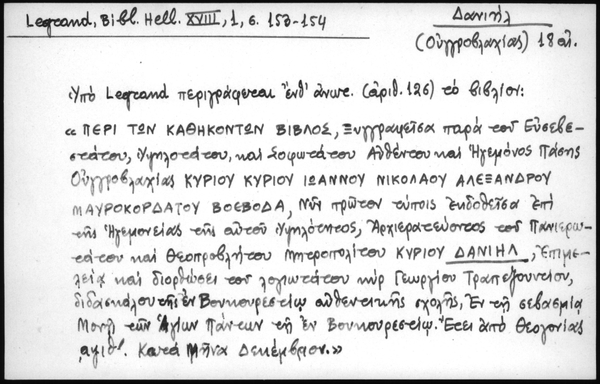 Legrand, Bibl. Hell. XVIII, 1, σ. 153-154
Δανιήλ
(Οὑγγροβλαχίας) 18 αἰ.
Ὑπὸ Legrand περιγράφεται ἔνθ' ἀνωτ. (ἀριθ. 126) τὸ βιβλίον:
« ΠΕΡΙ ΤΩΝ ΚΑΘΗΚΟΝΤΩΝ ΒΙΒΛΟΣ, Συγγραφεῖσα παρὰ τοῦ Εὐσεβε-
στάτου, Ὑψηλοτάτου, καὶ Σοφωτάτου Αὐθέντου καὶ Ἡγεμόνος Πάσης
Οὑγγροβλαχίας ΚΥΡΙΟΥ ΚΥΡΙΟΥ ΙΩΑΝΝΟΥ ΝΙΚΟΛΑΟΥ ΑΛΕΞΑΝΔΡΟΥ
ΜΑΥΡΟΚΟΡΔΑΤΟΥ ΒΟΕΒΟΔΑ, Νῦν πρῶτον τύποις ἐκδοθεῖσα Ἐπὶ
τῆς Ἡγεμονείας τῆς αὐτοῦ Ὑψηλότητος, Ἀρχιερατεύοντος τοῦ Πανιερω-
τάτου καὶ Θεοπροβλήτου Μητροπολίτου ΚΥΡΙΟΥ ΔΑΝΙΗΛ, Ἐπιμε-
λείᾳ καὶ διορθώσει τοῦ λογιωτάτου κὺρ Γεωργίου Τραπεζουντίου,
διδασκάλου τῆς ἐν Βουκουρεστίῳ αὐθεντικῆς σχολῆς, Ἐν τῇ σεβασμίᾳ
Μονῇ τῶν Ἁγίων Πάντων τῇ ἐν Βουκουρεστίῳ. Ἔτει ἀπὸ Θεογονίας
͵αψιθʹ. Κατὰ Μῆνα Δεκέμβριον.»